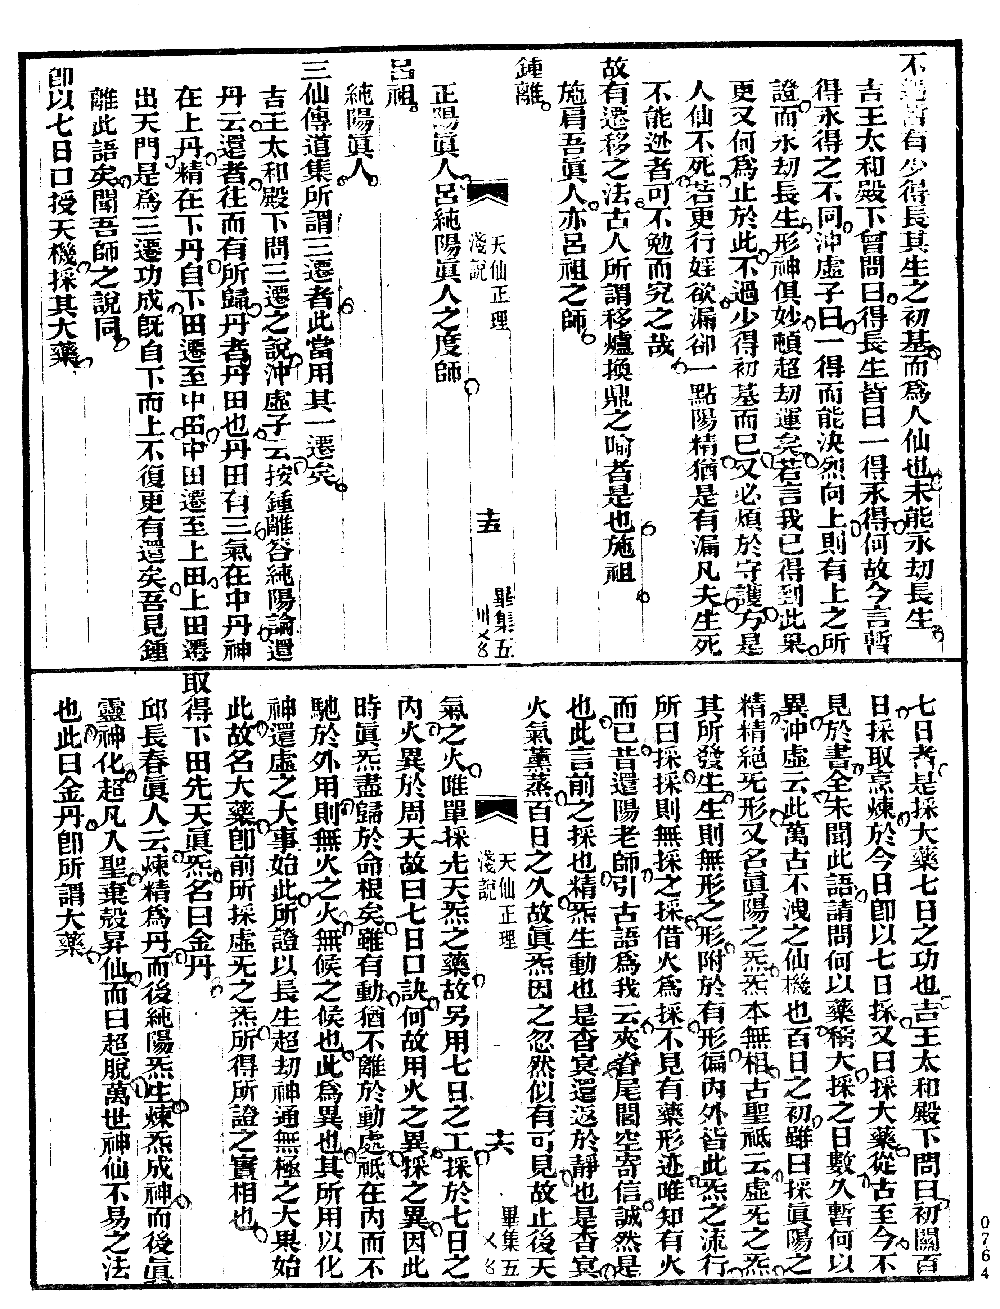 不過暫有少得長其生之初基而為人仙也未能永劫長生
吉王太和殿下曾問曰得長生皆曰一得永得何故今言暫
得永得之不同沖虛子曰一得而能決烈向上則有上之所
證而永劫長生形神俱妙頓超劫運矣若言我已得到此果
更又何為止於此不過少得初基而已又必煩於守護方是
人仙不死若更行婬欲漏卻一點陽精猶是有漏凡夫生死
不能逃者可不勉而究之哉
故有遷移之法古人所謂移爐換鼎之喻者是也施祖
施肩吾眞人亦呂祖之師
鍾離
天仙正理
淺說
十五
畢集五
正陽眞人呂純陽眞人之度師
呂祖
純陽眞人
三仙傳道集所謂三遷者此當用其一遷矣
吉王太和殿下問三遷之說沖虛子云按鍾離答純陽論還
丹云還者往而有所歸丹者丹田也丹田有三氣在中丹神
在上丹精在下丹自下田遷至中田中田遷至上田上田遷
出天門是為三遷功成既自下而上不復更有還矣吾見鍾
離此語矣聞吾師之說同
卽以七日口授天機採其大藥
七日者是採大藥七日之功也吉王太和殿下問曰初關百
日採取烹煉於今日卽以七日採又曰採大藥從古至今不
見於書全未聞此語請問何以藥稱大採之日數久暫何以
異沖虛云此萬古不洩之仙機也百日之初雖曰採眞陽之
精精絕旡形又名眞陽之炁炁本無相古聖祗云虛旡之炁
其所發生生則無形之形附於有形徧內外皆此炁之流行
所曰採採則無採之採借火為採不見有藥形迹唯知有火
而已昔還陽老師引古語為我云夾脊尾閭空寄信誠然是
也此言前之採也精炁生動也是杳冥還返於靜也是杳冥
火氣薰蒸百日之久故眞炁因之忽然似有可見故止後天
天仙正理
淺說
十六
畢集五
氣之火唯單採先天炁之藥故另用七日之工採於七日之
內火異於周天故曰七日口訣何故用火之異採之異因此
時眞炁盡歸於命根矣雖有動猶不離於動處祗在內而不
馳於外用則無火之火無候之候也此為異也其所用以化
神還虛之大事始此所證以長生超劫神通無極之大果始
此故名大藥卽前所採虛无之炁所得所證之實相也
取得下田先天眞炁名曰金丹
邱長春眞人云煉精為丹而後純陽炁生煉炁成神而後眞
靈神化超凡入聖棄殼昇仙而曰超脫萬世神仙不易之法
也此曰金丹卽所謂大藥
0764